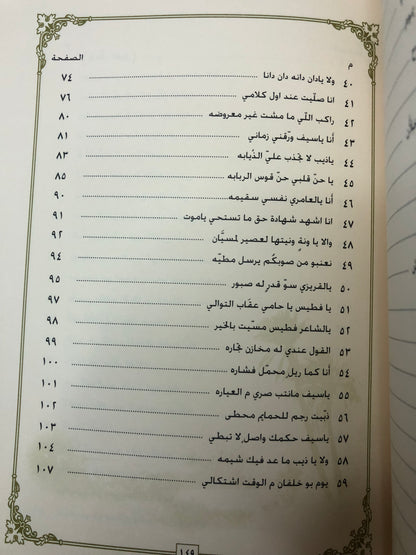 م الصفحة
٤٠ ولا يادان دانه دان دانا ٧٤
٤١ انا صلّيت عند اول كلامي ٧٦
٤٢ راكب اللّي ما مشت غير معروضه ٨٠
٤٣ أنا ياسيف ورّقني زماني ٨١
٤٤ ياذيب لا تجذب عليّ الذّيابه ٨٣
٤٥ يا حنّ قلبي حنّ قوس الربابه ٨٥
٤٦ أنا بالعامري نفسي سقيمه ٩٠
٤٧ انا اشهد شهادة حق ما تستحي ياموت ٩١
٤٨ والا يا ونةٍ ونيتها لعصير لمسيّان ٩٢
٤٩ نعنبو من صوبكُم يرسل مطيّه ٩٤
٥٠ بالفريزي سوّ قدرٍ له صبور ٩٥
٥١ يا فطيس يا حامي عقاب التوالي ٩٧
٥٢ بالشاعر فطيس مسّيت بالخير ٩٨
٥٣ القول عندي له مخازن تجاره ٩٩
٥٤ أنا كما ريلٍ محمّل فشاره ١٠٠
٥٥ ياسيف مانتب صري م العياره ١٠١
٥٦ ذبّيت رجم للحمايم محطى ١٠٢
٥٧ ياسيف حكمك واصلٍ لا تبطي ١٠٣
٥٨ ولا يا ذيب ما عد فيك شيمه ١٠٤
٥٩ يوم بو خلفان م الوقت اشتكالي ١٠٧
١٤٩